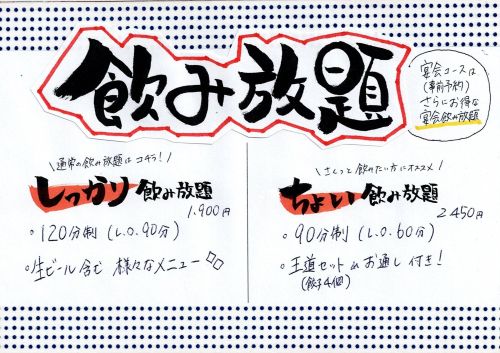 飲み放題
宴会コースは
(事前予約)
さらにお得な
宴会飲み放題
\通常の飲み放題はコチラ!/
しっかり飲み放題
1.900円
・120分制 (L.O.90分)
・生ビール含む 様々なメニュー
\さくっと飲みたい方にオススメ/
ちょい飲み放題
2450円
・90分制 (L.O.60分)
・王道セット お通し付き!
(餃子4個)